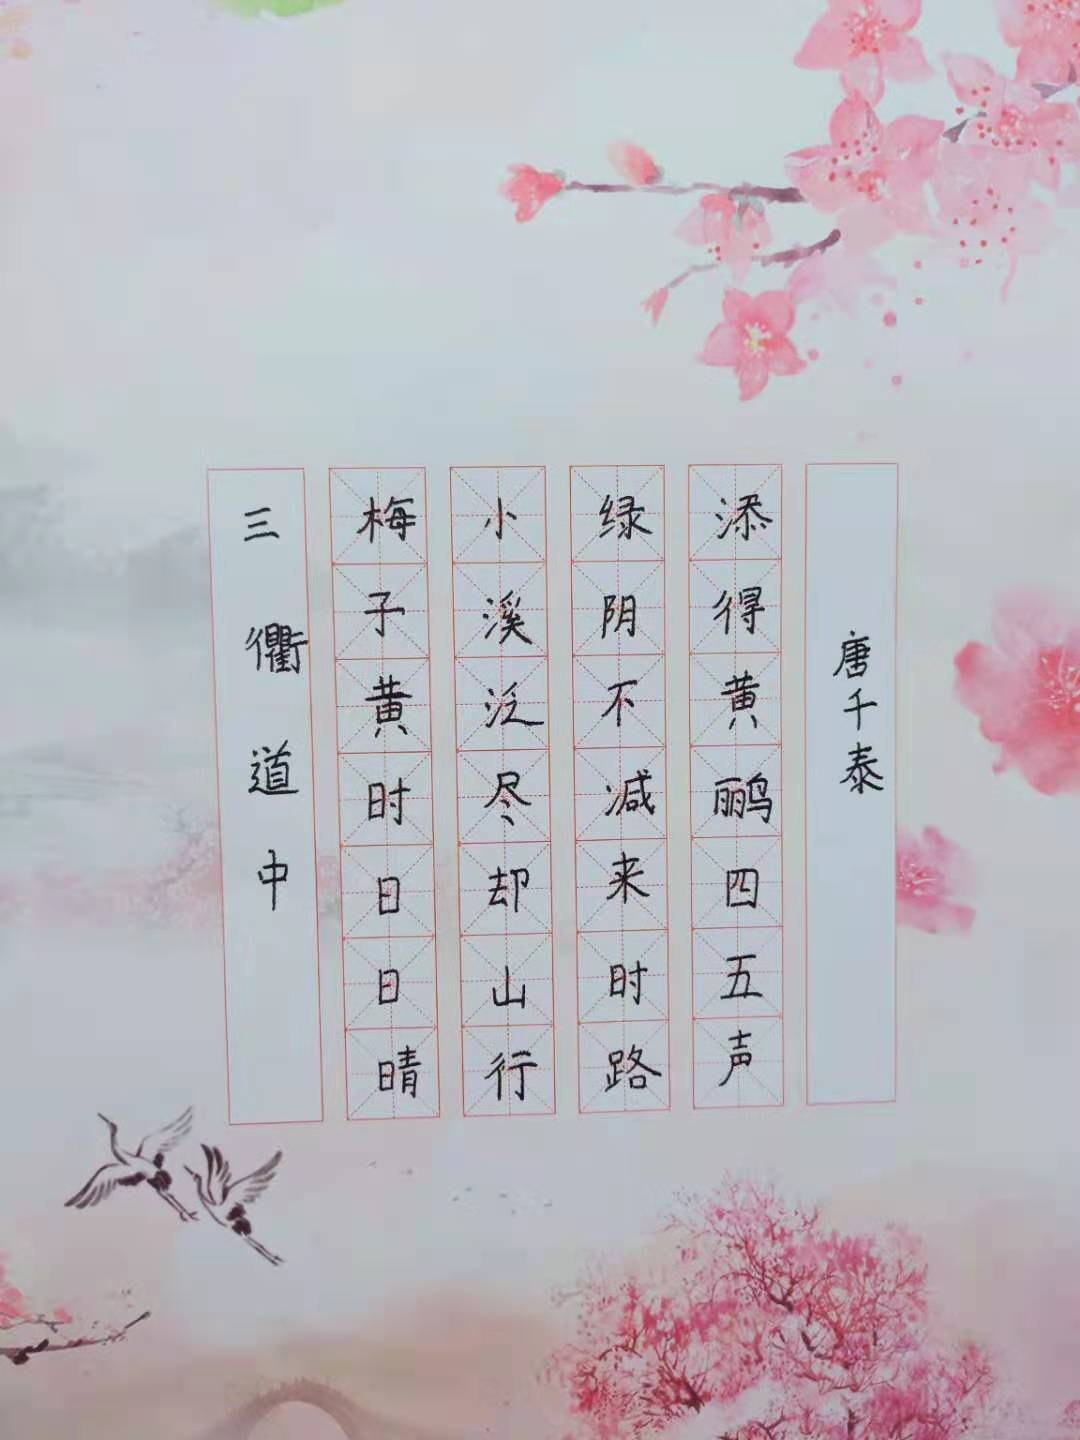 三衢道中
梅子黄时日日晴
小溪泛尽却山行
绿阴不减来时路
添得黄鹂四五声
唐千泰